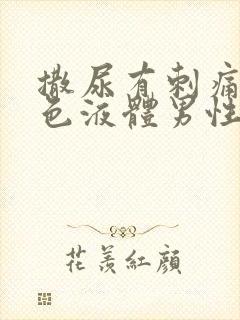 撒尿有刺痛
色液體男性
花羨紅顏